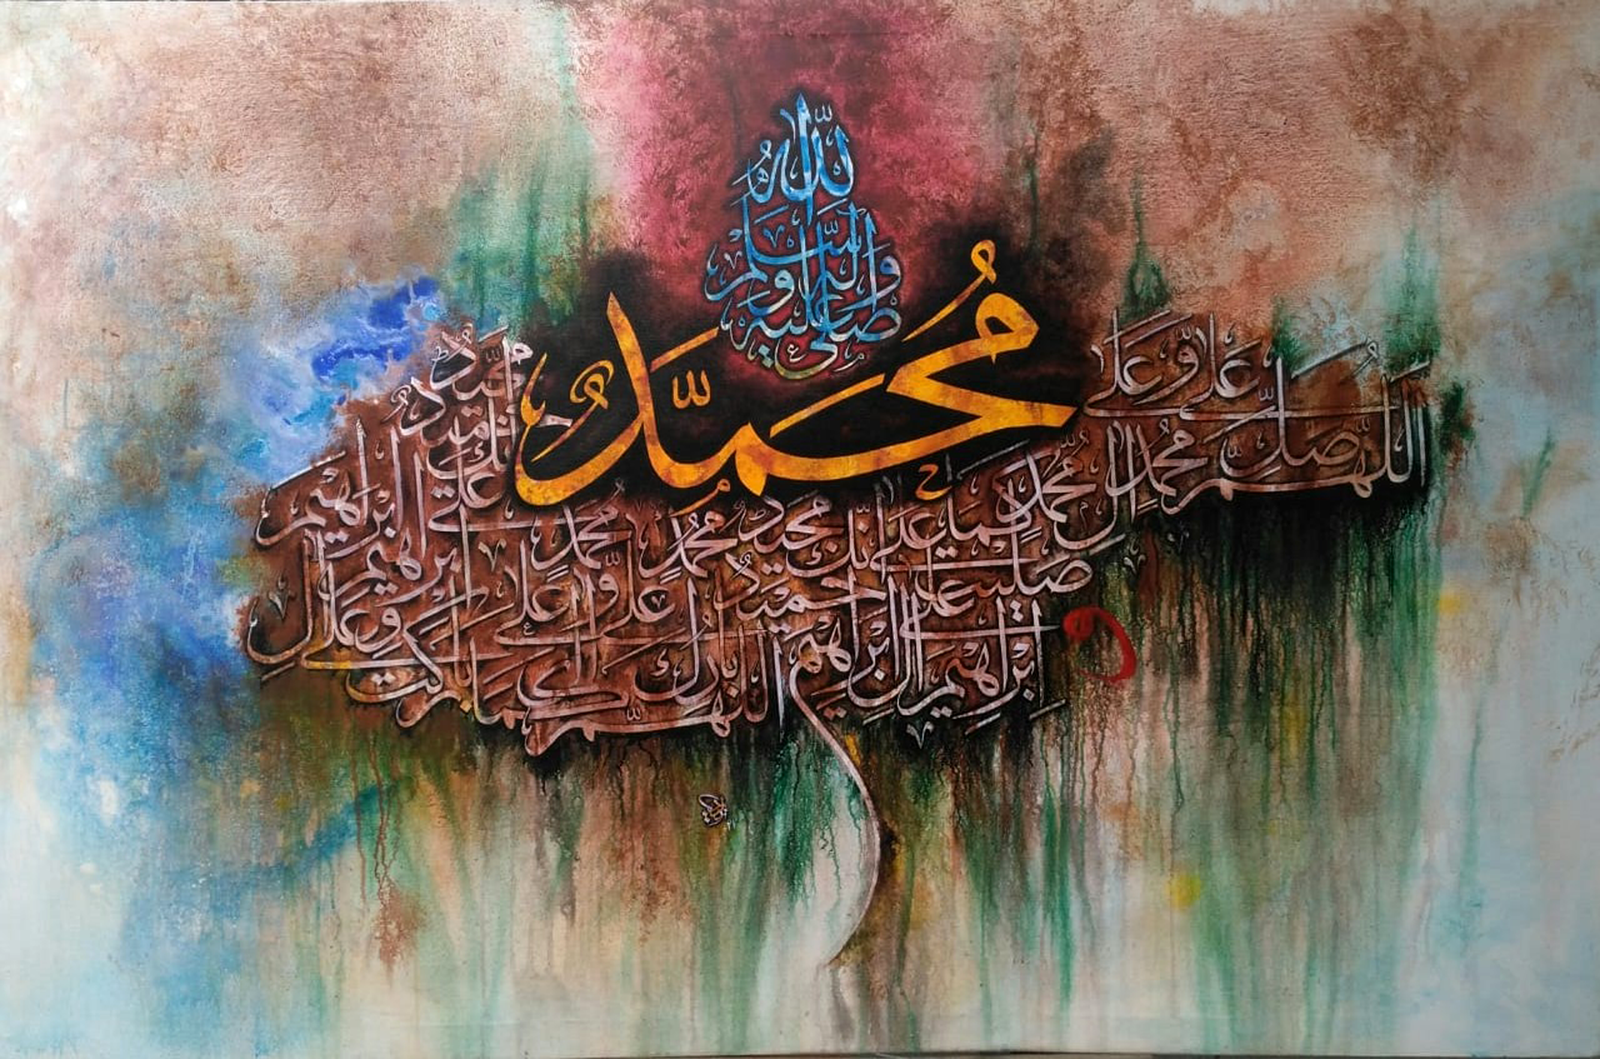 صلى الله عليه واله وسلم
مُحَمَّدٌ
اللهم صل على محمد وعلى ال محمد
كما صليت على ابرهيم وعلى ال ابرهيم انك حميد مجيد
اللهم بارك على محمد وعلى ال محمد
كما باركت على ابرهيم وعلى ال ابرهيم انك حميد مجيد